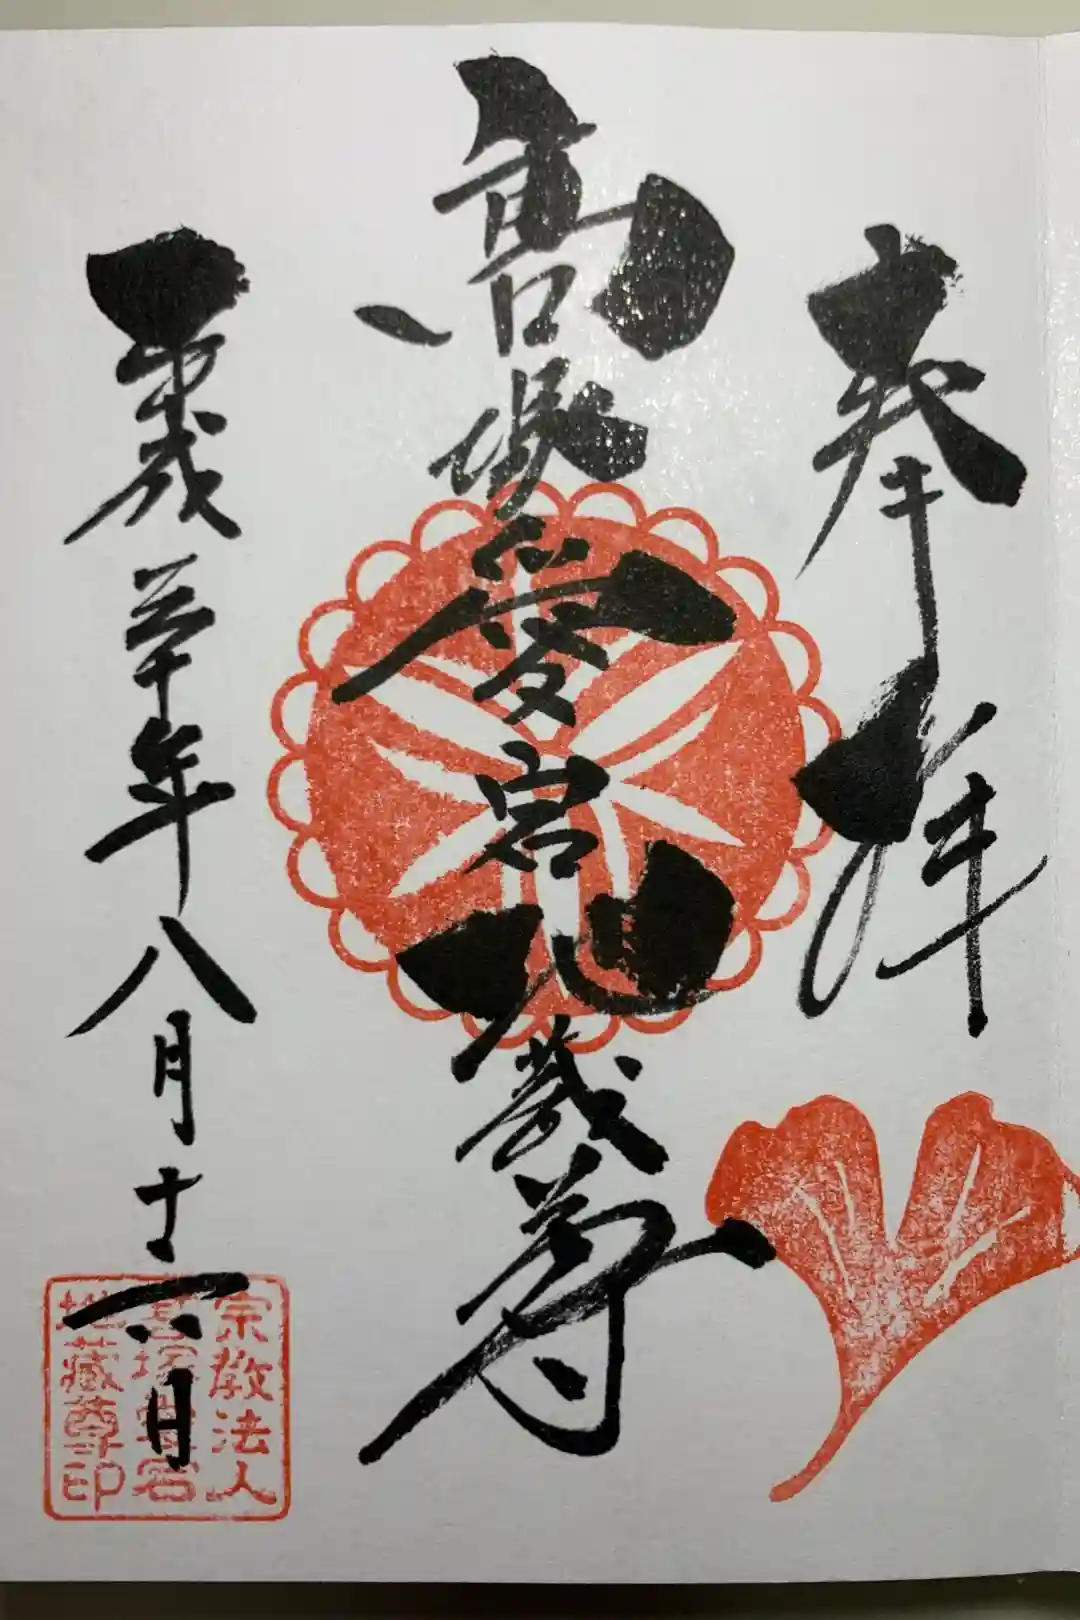 奉拝
高塚愛宕地蔵尊
平成三十年八月十六日
宗教法人
高塚愛宕
地藏尊印